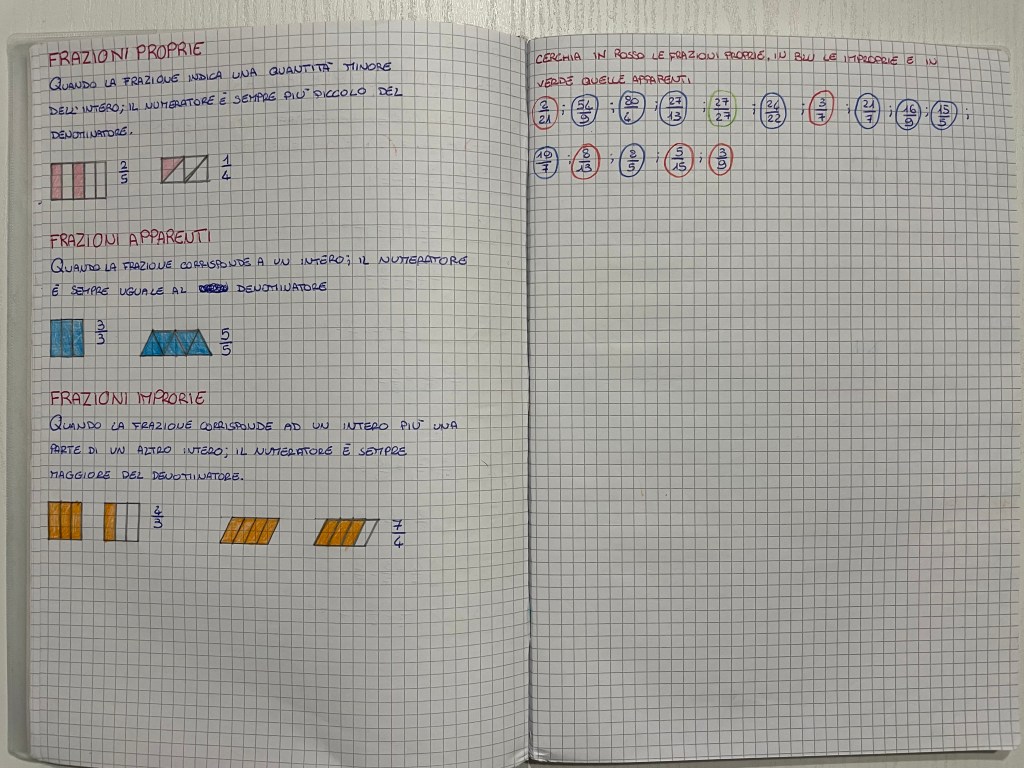 FRAZIONI PROPRIE
QUANDO LA FRAZIONE INDICA UNA QUANTITÀ MINORE
DELL'INTERO; IL NUMERATORE È SEMPRE PIÙ PICCOLO DEL
DENOMINATORE.
2/5 1/4
FRAZIONI APPARENTI
QUANDO LA FRAZIONE CORRISPONDE A UN INTERO; IL NUMERATORE
È SEMPRE UGUALE AL DENOMINATORE
3/3 5/5
FRAZIONI IMPRORIE
QUANDO LA FRAZIONE CORRISPONDE AD UN INTERO PIÙ UNA
PARTE DI UN ALTRO INTERO; IL NUMERATORE È SEMPRE
MAGGIORE DEL DENOMINATORE.
4/3 7/4
CERCHIA IN ROSSO LE FRAZIONI PROPRIE, IN BLU LE IMPROPRIE E IN
VERDE QUELLE APPARENTI
2/21 ; 54/9 ; 80/4 ; 27/13 ; 27/27 ; 24/22 ; 3/7 ; 21/7 ; 16/9 ; 15/5 ;
19/7 ; 8/13 ; 8/5 ; 5/15 ; 3/9